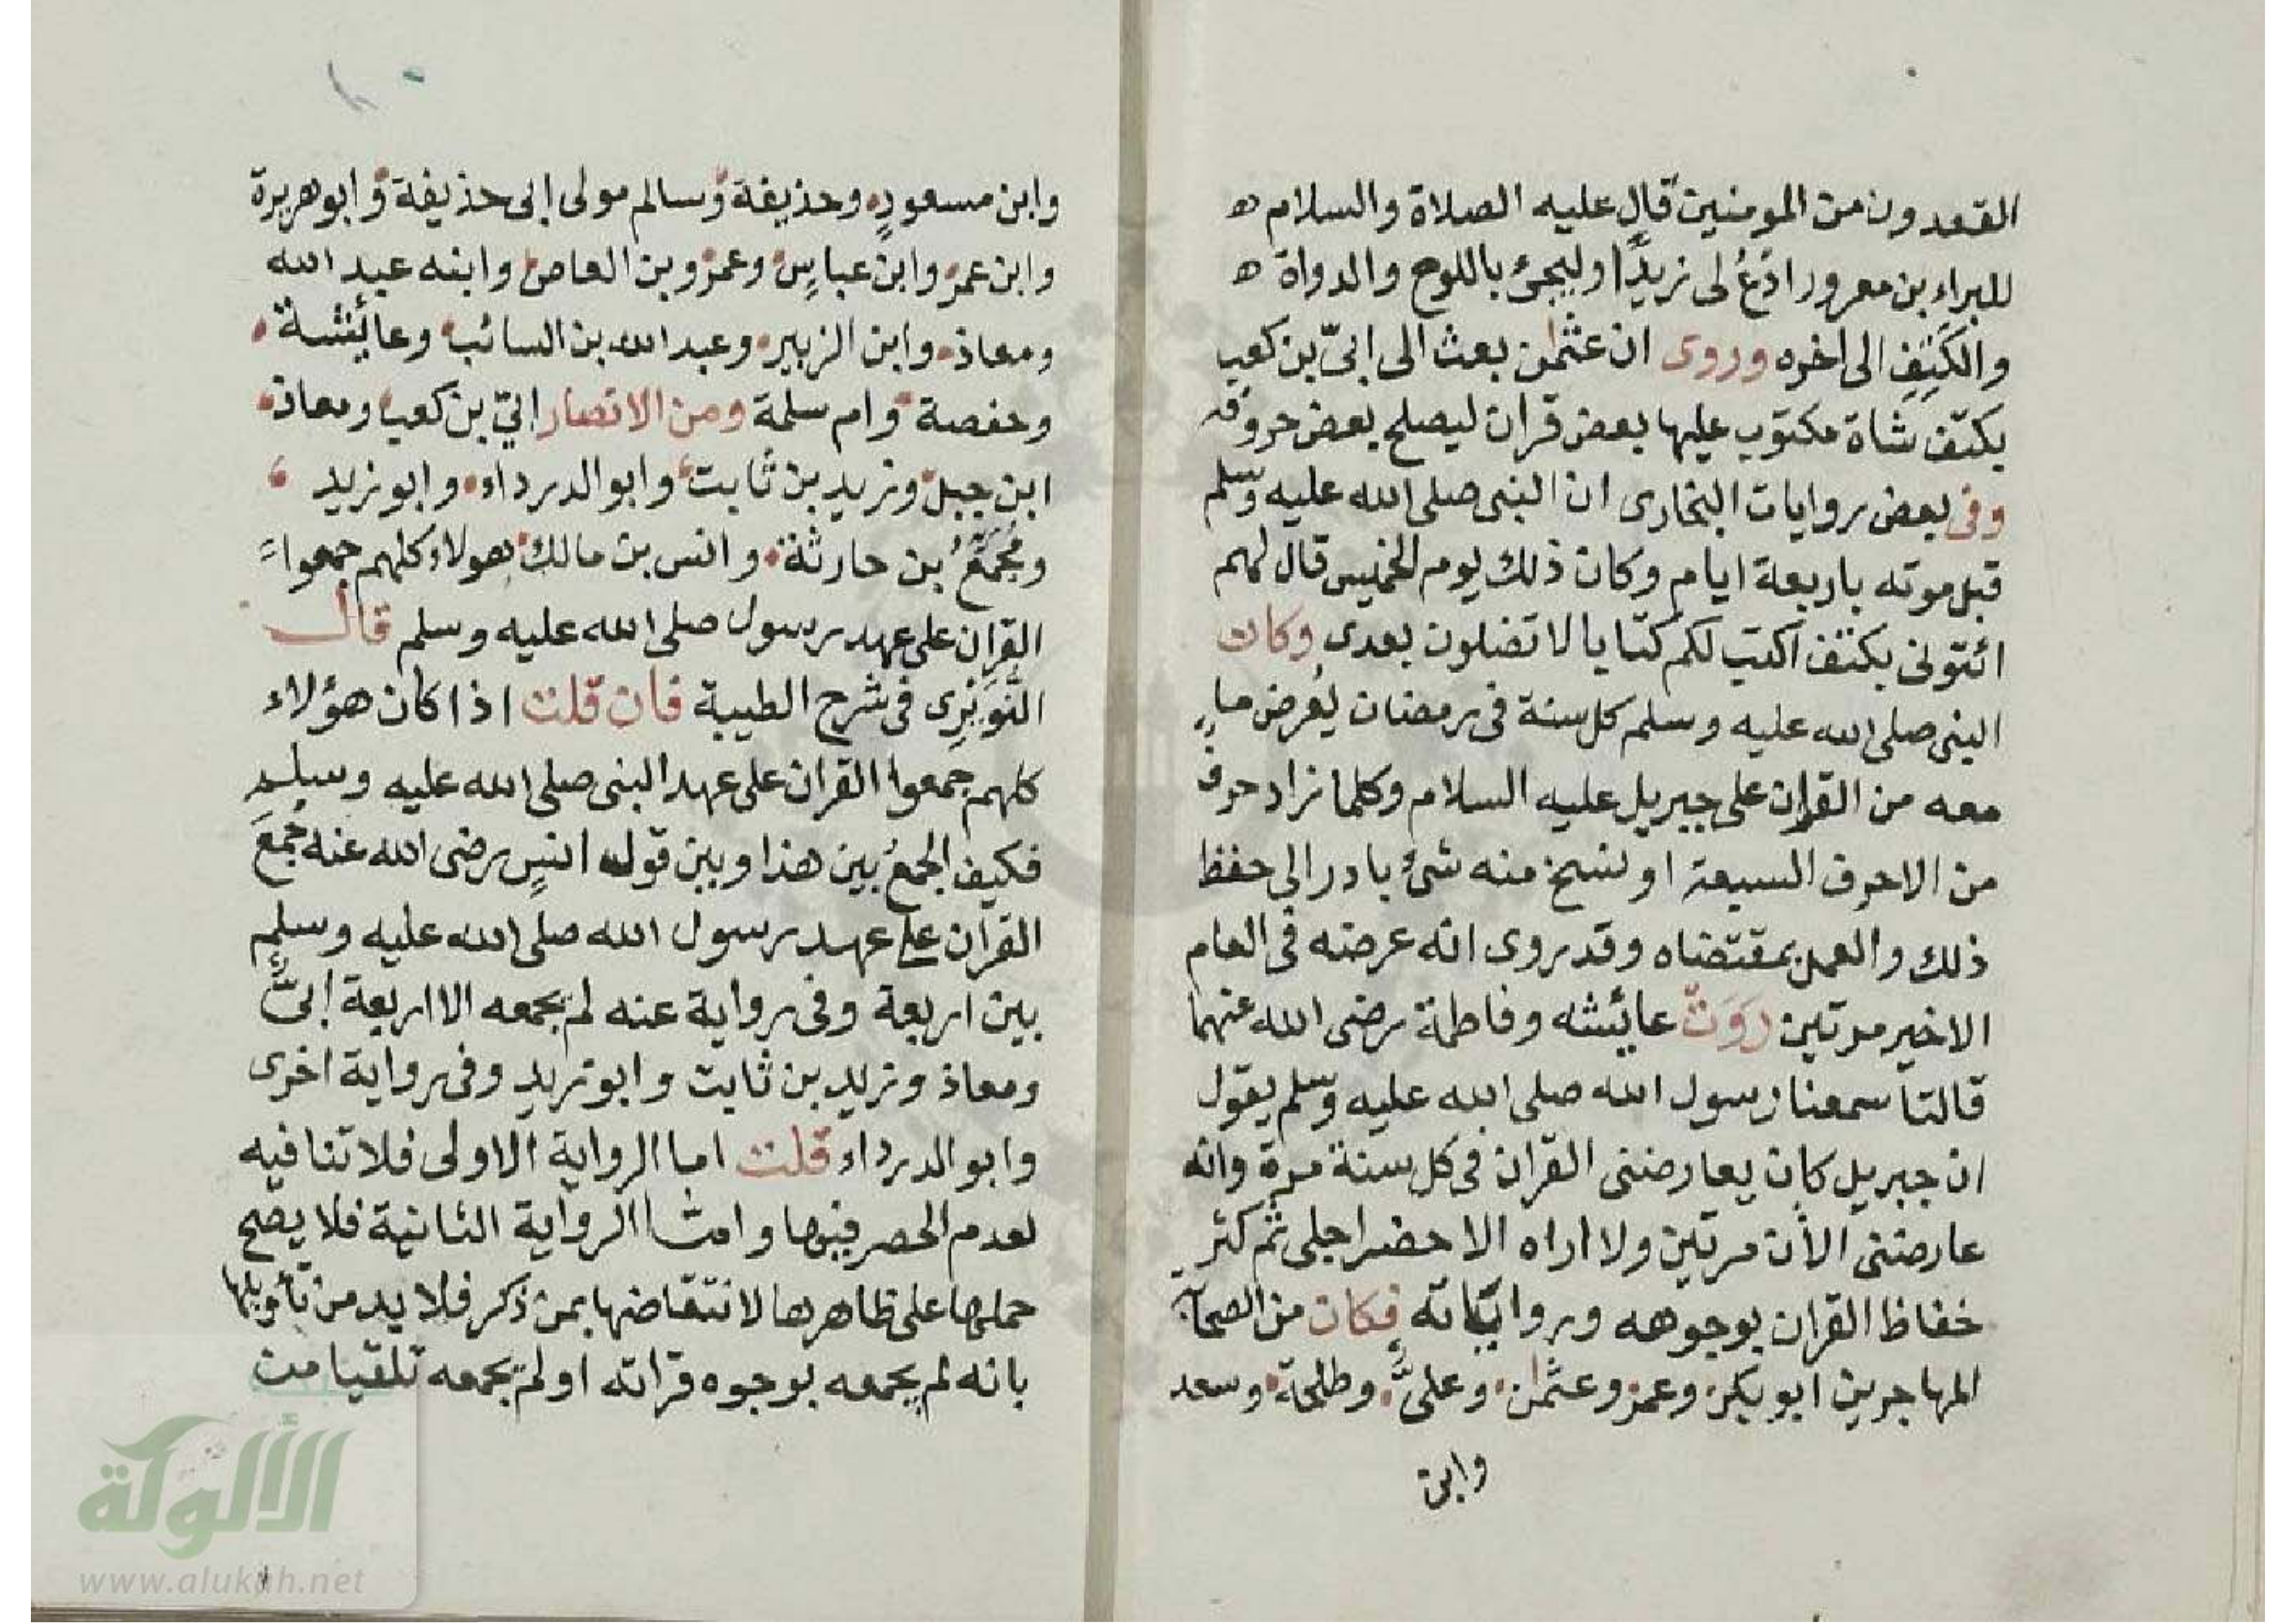 القعدون من المومنين قال عليه الصلاة والسلام ه
للبراء بن معرور ادع لى زيدا وليجئ باللوح والدواة ه
والكتف الى اخره وروى ان عثمن بعث الى ابىّ بن كعب
بكتف شاة مكتوب عليها بعض قران ليصلح بعض حروفه
وفى بعض روايات البخارى ان النبى صلى الله عليه وسلم
قبل موته باربعة ايام وكان ذلك يوم الخميس قال لهم
ائتونى بكتف اكتب لكم كتابا لا تضلون بعدى وكان
النبى صلى الله عليه وسلم كل سنة فى رمضان يُعرض ما
معه من القران على جبريل عليه السلام وكلما زاد حرف
من الاحرف السبعة او نسخ منه شئ بادر الى حفظ
ذلك والعمل بمقتضاه وقد روى انه عرضه فى العام
الاخير مرتين رَوَتْ عائشه وفاطمة رضى الله عنهما
قالتا سمعنا رسول الله صلى الله عليه وسلم يقول
ان جبريل كان يعارضنى القران فى كل سنة مرة وانه
عارضنى الأن مرتين ولا اراه الا حضر اجلى ثم كثر
حفاظ القران بوجوهه ورواياته فكان من الصحابة
المهاجرين ابو بكر وعمر وعثمن وعلىّ وطلحة وسعد
وابن
وابن مسعودٍ وحذيفة وسالم مولى ابى حذيفة وابو هريرة
وابن عمر وابن عباسٍ وعمرو بن العاص وابنه عبد الله
ومعاذ وابن الزبير وعبد الله بن السائب وعائشة
وحفصة وام سلمة ومن الانصار ابيّ بن كعب ومعاذ
ابن جبل وزيد بن ثابت وابو الدرداء وابو زيد
ومُجَمِّعُ بن حارثة وانس بن مالك هولاء كلهم جمعوا
القران على عهد رسول صلى الله عليه وسلم قال
النُّوَيْرِى فى شرح الطيبة فان قلت اذا كان هؤلاء
كلهم جمعوا القران على عهد النبى صلى الله عليه وسلم
فكيف الجمعُ بين هذا وبين قول انسٍ رضى الله عنه جَمَعَ
القران على عهد رسول الله صلى الله عليه وسلم
بين اربعة وفى رواية عنه لم يجمعه الا اربعة ابىّ
ومعاذ وزيد بن ثابت وابو زيد وفى رواية اخرى
وابو الدرداء قلت اما الرواية الاولى فلا تنافيه
لعدم الحصر فيها وامّا الرواية الثانية فلا يصح
حملها على ظاهرها لانتقاضها بمن ذكر فلا بد من تأويلها
بانه لم يجمعه بوجوه قراته او لم يجمعه تلقيا من
الألوكة
www.alukah.net